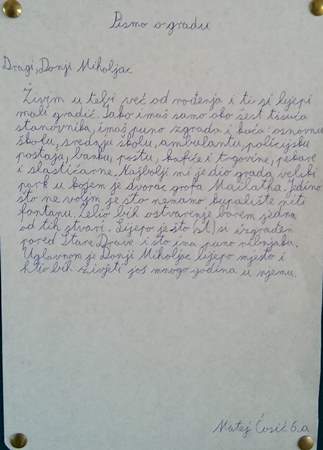 Pismo o gradu
Dragi, Donji Miholjac
Živim u tebi već od rođenja i ti si lijepi
mali gradić. Iako imaš samo oko šest tisuća
stanovnika, imaš puno zgrada i kuća: osnovnu
školu, srednju školu, ambulantu, policijsku
postaju, banku, poštu, kafiće i trgovine, pekare
i slastičarne. Najbolji mi je dio grada veliki
park u kojem je dvorac grofa Mailatha. Jedino
što ne volim je što nemamo kupalište niti
fontanu. Želio bih ostvarenje barem jedne
od tih stvari. Lijepo je što si izgrađen
pored Stare Drave i što ima puno ribnjaka.
Uglavnom je Donji Miholjac lijepo mjesto i
htio bih živjeti još mnogo godina u njemu.
Matej Ćosić 6.a